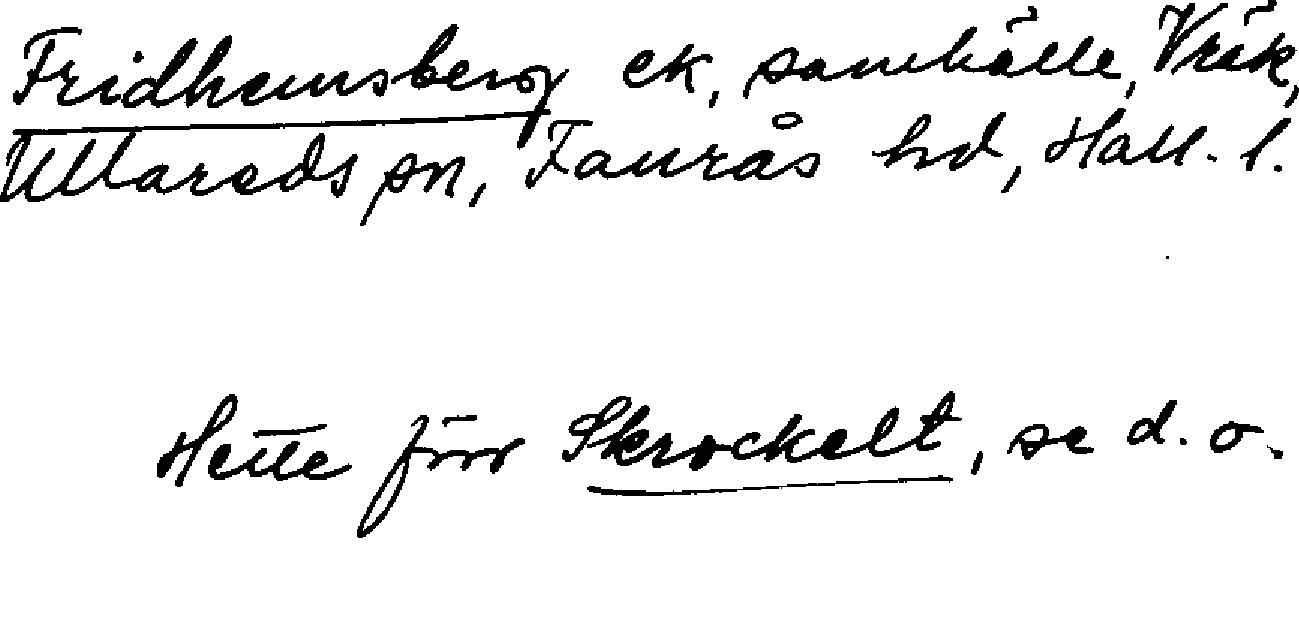 Fridhemsberg ek, samhälle, Vräk,
Ullareds sn, Faurås hd, Hall. l.
Hette förr Skrockelt, se d. o.